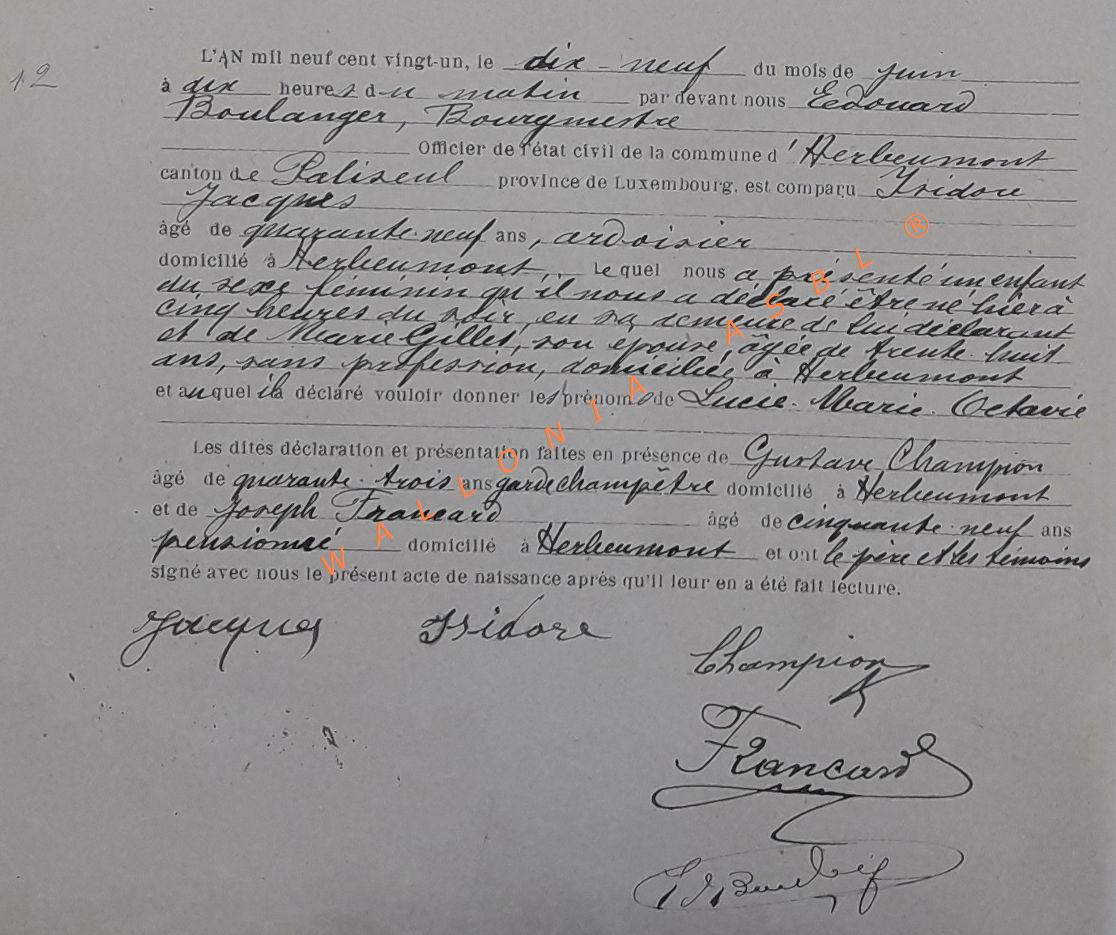 12
L'AN mil neuf cent vingt-un, le dix-neuf du mois de juin
à dix heures du matin par devant nous Edouard
Boulanger, Bourgmestre
Officier de l'état civil de la commune d'Herbeumont
canton de Paliseul province de Luxembourg, est comparu Isidore
Jacques
âgé de quarante-neuf ans, ardoisier
domicilié à Herbeumont, Lequel nous a présenté un enfant
du sexe féminin qu'il nous a déclaré être né hier à
cinq heures du soir, en sa demeure de lui déclarant
et de Marie Gilles, son épouse, âgée de trente-huit
ans, sans profession, domiciliée à Herbeumont
et auquel il a déclaré vouloir donner les prénoms de Lucie-Marie-Octavie
Les dites déclaration et présentation faites en présence de Gustave Champion
âgé de quarante-trois ans garde champêtre domicilié à Herbeumont
et de Joseph Francard âgé de cinquante-neuf ans
pensionné domicilié à Herbeumont et ont le père et les témoins
signé avec nous le présent acte de naissance après qu'il leur en a été fait lecture.
Jacques Isidore
Champion
Francard
WALLONIA ASBL ®